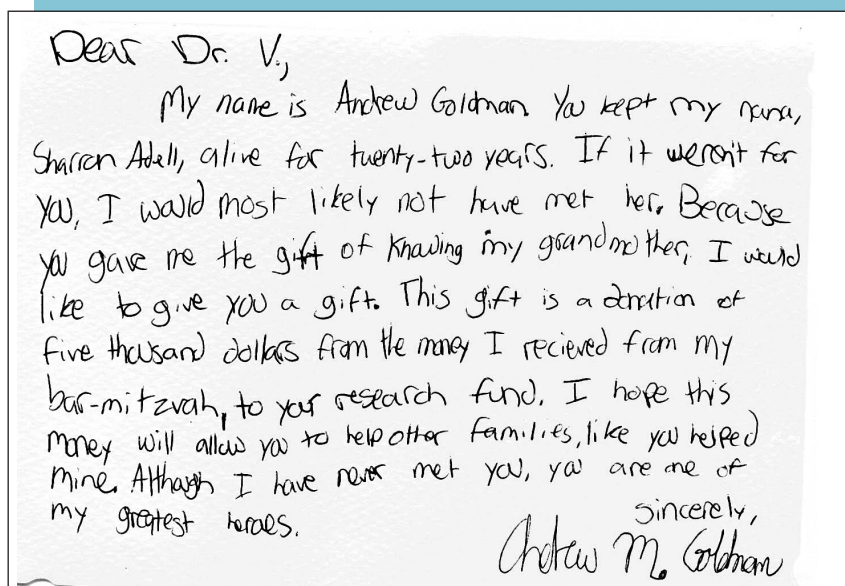 Dear Dr. V.,
My name is Andrew Goldman. You kept my nana,
Sharron Adell, alive for twenty-two years. If it weren't for
you, I would most likely not have met her. Because
you gave me the gift of knowing my grandmother, I would
like to give you a gift. This gift is a donation of
five thousand dollars from the money I recieved from my
bar-mitzvah, to your research fund. I hope this
money will allow you to help other families, like you helped
mine. Although I have never met you, you are one of
my greatest heroes.
Sincerely,
Andrew M. Goldman